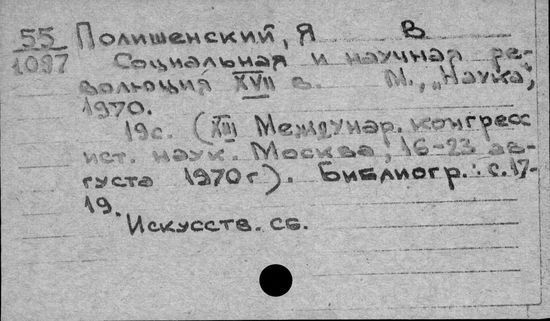 55 Полишенский, Я В
1097 Социальная и научная ре-
волюция XVII в. М., „Наука",
1970.
19с. (XIII Междунар. конгресс
ист. наук. Москва, 16-23 ав-
густа 1970г). Библиогр.: с.17-
19.
Искусств. сб.